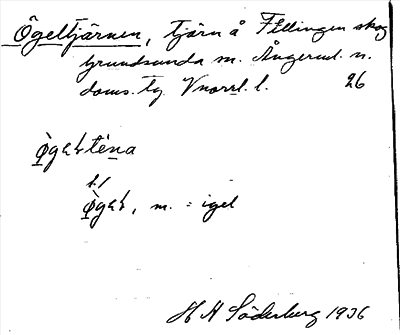 Ögeltjärnen, tjärn å Fillingen skog
Grundsunda m. Ångerml. n.
doms. tg. Vnorrl. l. 26
ògəltèna
1./
ògəl, m. = igel
H A Söderberg 1936